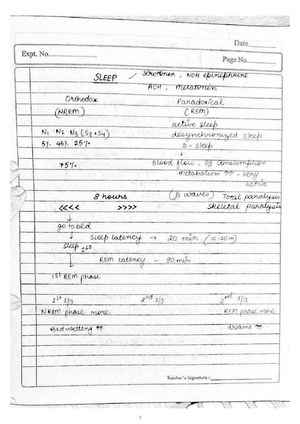 Date
Expt. No.
Page No.
SLEEP / Serotonin, NOR epinephrine
ACH, Melatonin
Orthodox Paradoxical
(NREM) (REM)
active sleep
N1 N2 N3 (S3+S4) desynchronized sleep
5% 45% 25% D - sleep
75% Blood flow, O2 consumption
metabolism ↑↑ - very
active
8 hours (β waves) Total paralysis
<<<< >>>> skeletal paralysis
↓
go to bed
↓ sleep latency → 20 min (10-20m)
sleep
↓ REM latency - 90 min
1st REM phase
1st 1/3 2nd 1/3 2nd 1/3
NREM phase more REM phase more
Bedwetting ↑↑ dreams ↑↑
Teacher's Signature :
1